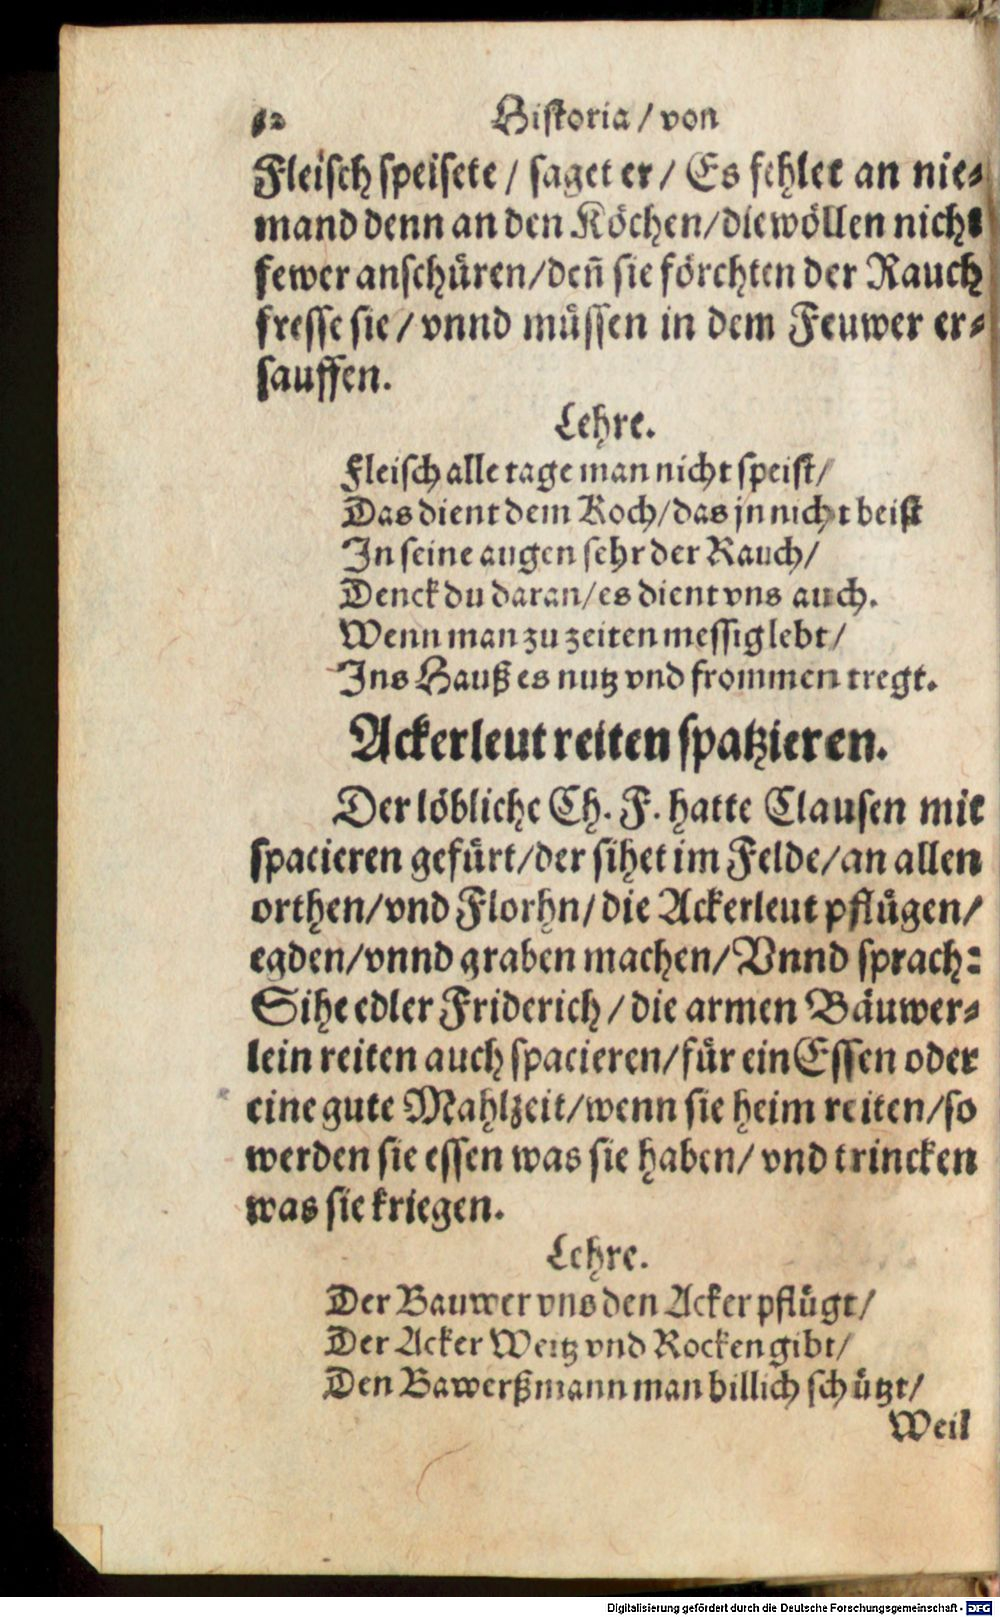 Historia / von
Fleisch speisete / saget er / Es fehlet an nie⸗
mand denn an den Köchen/die wöllen nicht
fewer anschüren/deñ sie förchten der Rauch
fresse sie / vnnd müssen in dem Feuwer er⸗
sauffen.
Lehre.
Fleisch alle tage man nicht speist/
Das dient dem Koch/das jn nicht beist
In seine augen sehr der Rauch/
Denck du daran/es dient vns auch.
Wenn man zu zeiten messig lebt/
Ins Hauß es nutz vnd frommen tregt.
Ackerleut reiten spatzieren.
Der löbliche Ch. F. hatte Clausen mit
spacieren gefürt/der sihet im Felde/an allen
orthen/vnd Florhn/die Ackerleut pflügen/
egden/vnnd graben machen/Vnnd sprach:
Sihe edler Friderich / die armen Bäuwer⸗
lein reiten auch spacieren/für ein Essen oder
eine gute Mahlzeit/wenn sie heim reiten/so
werden sie essen was sie haben/ vnd trincken
was sie kriegen.
Lehre.
Der Bauwer vns den Acker pflügt/
Der Acker Weitz vnd Rocken gibt/
Den Bawerßmann man billich schützt/
Weil
Digitalisierung gefördert durch die Deutsche Forschungsgemeinschaft - DFG